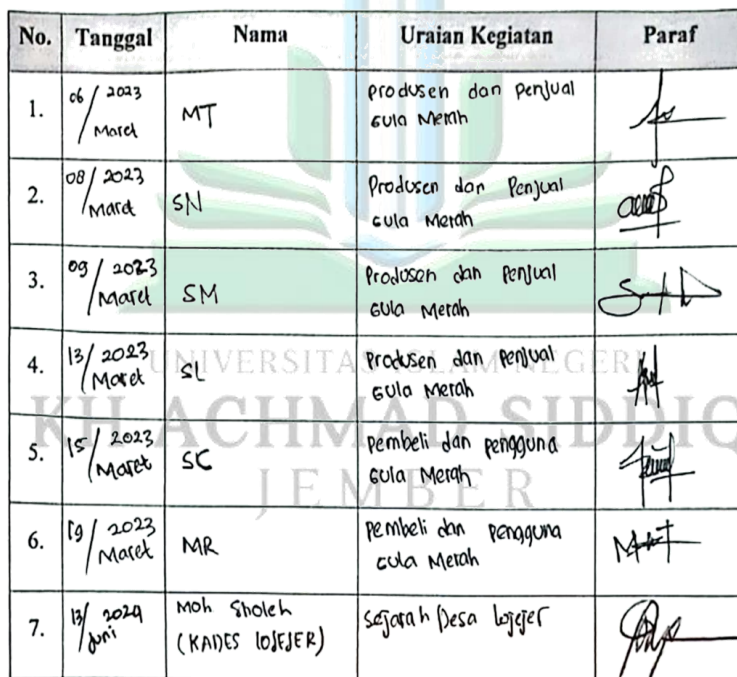 No. Tanggal Nama Uraian Kegiatan Paraf
1. 06/ 2023 Maret MT Produsen dan Penjual
Gula Merah
2. 08/ 2023 Maret SN Produsen dan Penjual
Gula Merah
3. 09/ 2023 Maret SM Produsen dan Penjual
Gula Merah
4. 13/ 2023 Maret SL Produsen dan Penjual
Gula Merah
5. 15/ 2023 Maret SC Pembeli dan Pengguna
Gula Merah
6. 19/ 2023 Maret MR Pembeli dan Pengguna
Gula Merah
7. 13/ 2024 Juni Moh Sholeh Sejarah Desa Lojejer
(KADES LOJEJER)
UNIVERSITAS ISLAM NEGERI
KH ACHMAD SIDDIQ
JEMBER